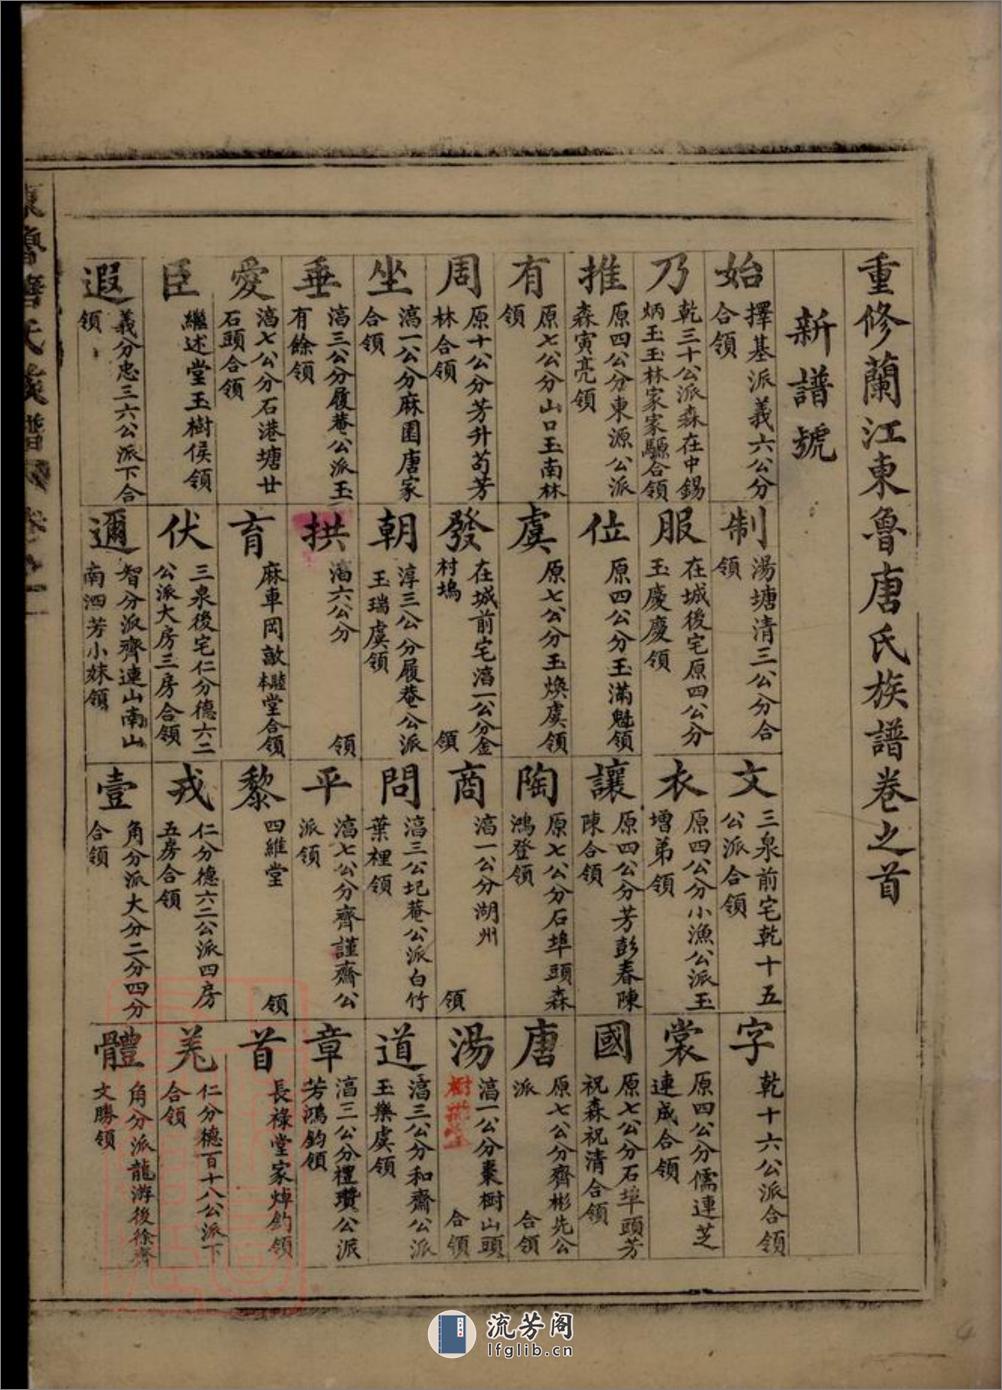 重修蘭江東魯唐氏族譜卷之首
新譜號
始 擇基派義六公分合領
制 湯塘清三公分合領
文 三泉前宅乾十五公派合領
字 乾十六公派合領
乃 乾三十公派森在中錫炳玉玉林家家驅合領
服 在城後宅原四公分玉慶慶領
衣 原四公分小漁公派玉增弟領
裳 原四公分儒連芝連成合領
推 原四公分東源公派森寅亮領
位 原四公分玉滿魁領
讓 原四公分芳彭春陳陳合領
國 原七公分石埠頭芳祝森祝清合領
有 原七公分山口玉南林領
虞 原七公分玉煥虞領
陶 原七公分石埠頭森鴻登領
唐 原七公分齊彬先公派 合領
周 原十公分芳升苟芳林合領
發 在城前宅滈一公分金村塢 領
商 滈一公分湖州 領
湯 滈一公分棗樹山頭 合領
坐 滈一公分麻園唐家合領
朝 淳三公分履菴公派玉瑞虞領
問 滈三公圯菴公派白竹葉裡領
道 滈三公分和齋公派玉樂虞領
垂 滈三公分履菴公派玉有餘領
拱 滈六公分 領
平 滈七公分齊謹齋公派領
章 滈三公分禮瓚公派芳鴻鈞領
愛 滈七公分石港塘廿石頭合領
育 麻車岡敵本睦堂合領
黎 四維堂 領
首 長祿堂家焯鈞領
臣 繼述堂玉樹侯領
伏 三泉後宅仁分德六二公派大房三房合領
戎 仁分德六二公派四房五房合領
羌 仁分德百十八公派下合領
遐 義分忠三六公派下合領
邇 智分派齊連山南山南泗芳小妹領
壹 角分派大分二分四分合領
體 角分派龍游後徐齊文勝領
流芳阁
lfglib.cn